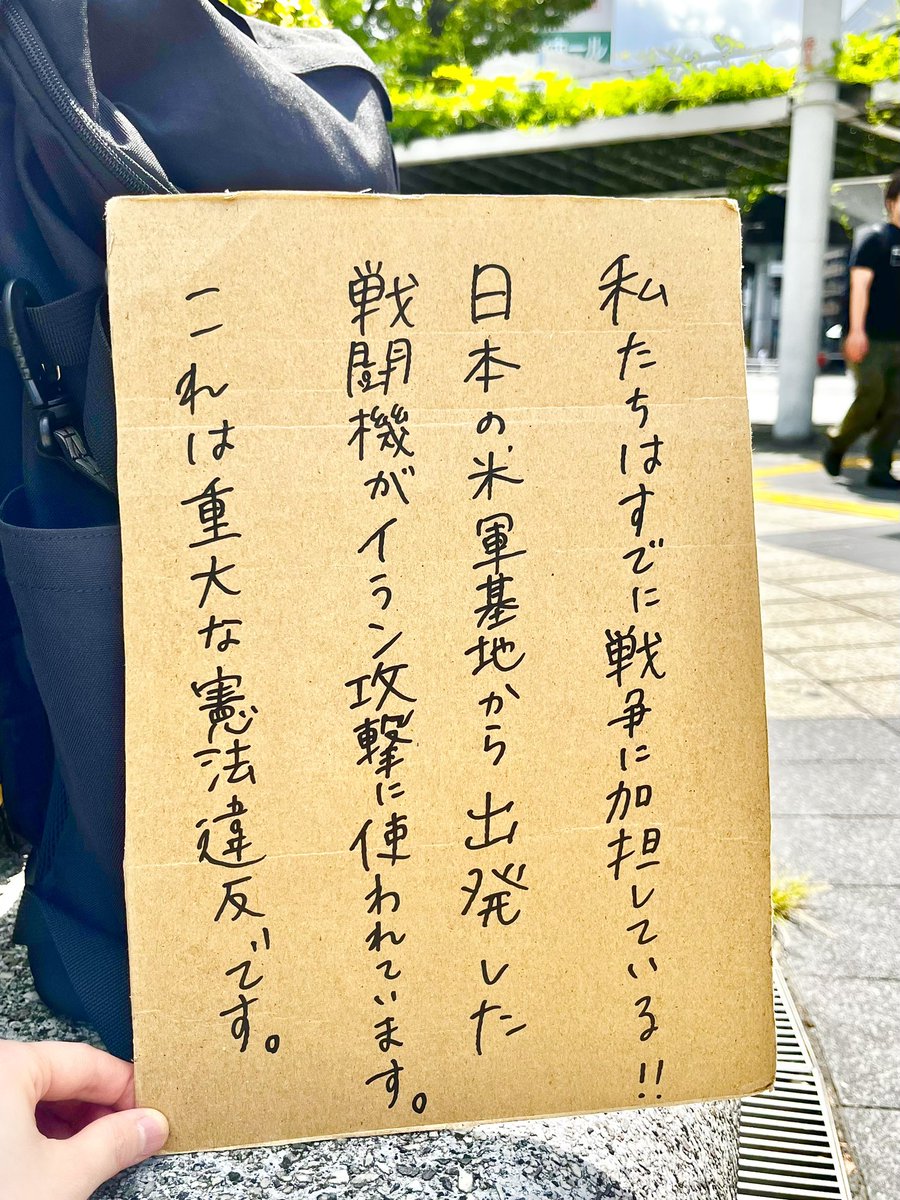 私たちはすでに戦争に加担している!!
日本の米軍基地から出発した
戦闘機がイラン攻撃に使われています。
これは重大な憲法違反です。
ール